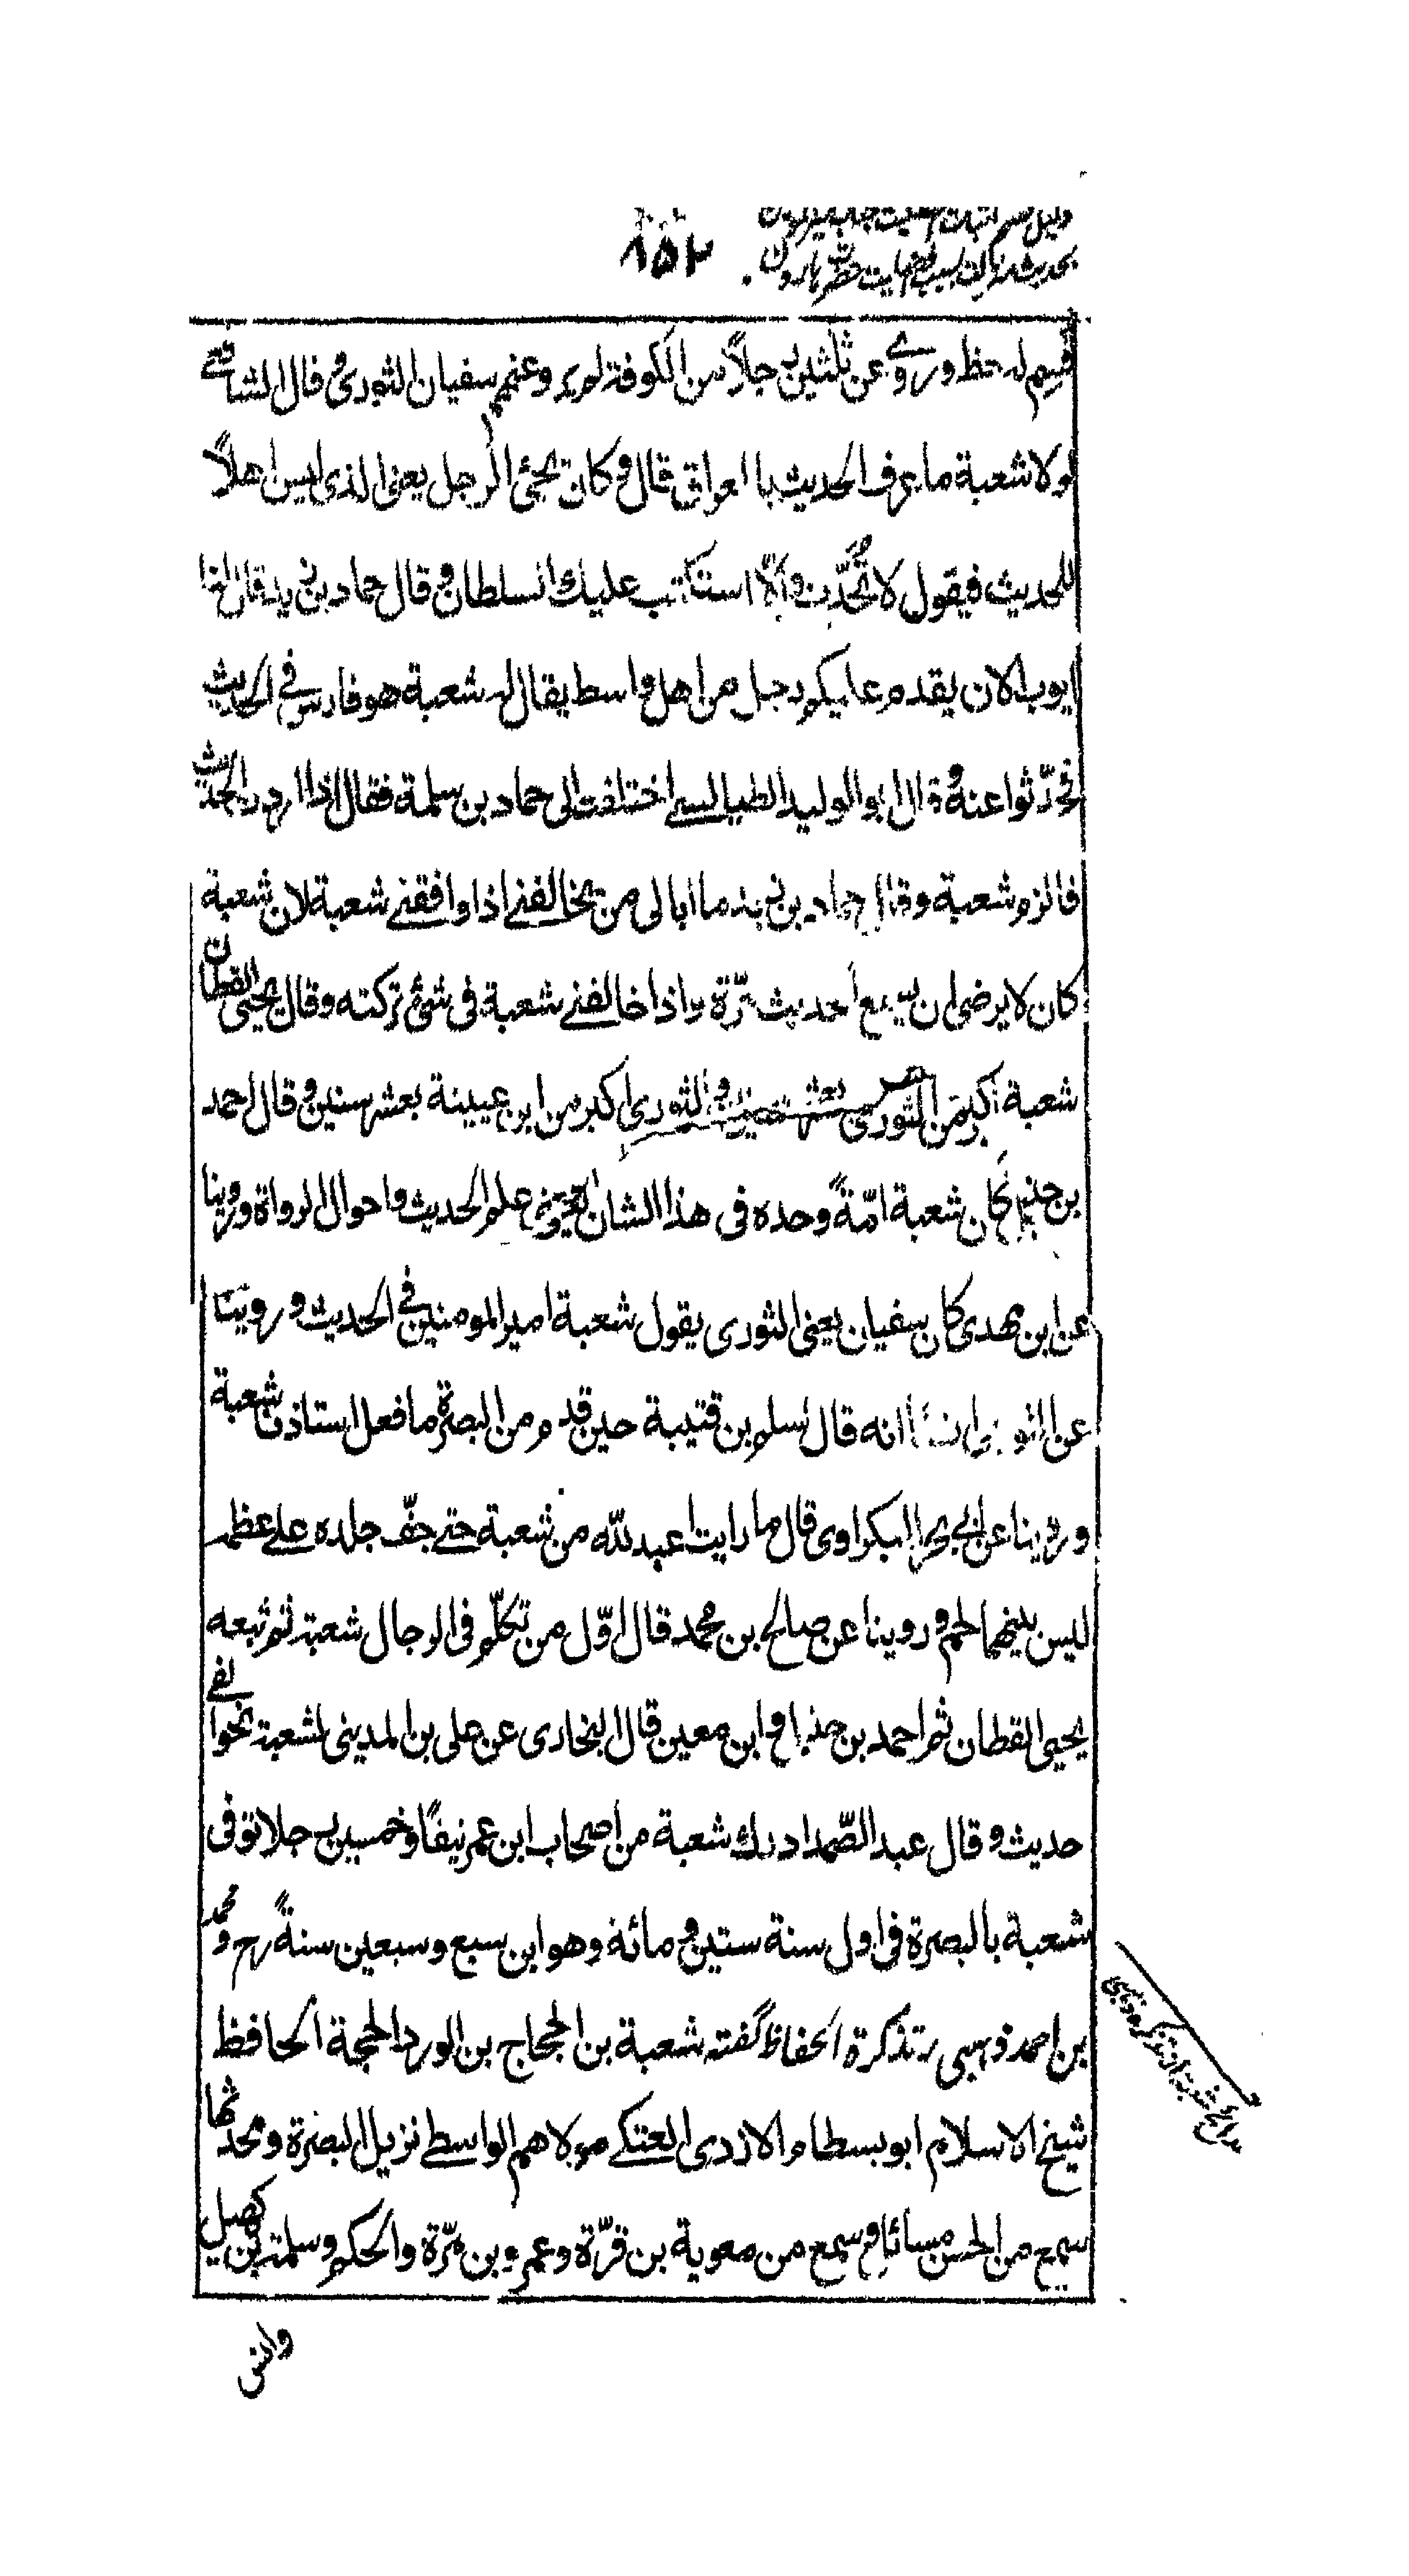 بحديث منزلت بسبب حضرت هارون
۱۵۲
قسم له حظ وروى عن ثلثين رجلاً من الكوفة لم يرو عنهم سفيان الثوري وقال الشافعي
لولا شعبة ما عرف الحديث بالعراق قال وكان يجئ الرجل يعنى الذى ليس اهلاً
للحديث فيقول لا تُحدِّث وإلّا استكتب عليك السلطان وقال حماد بن زيد قال لنا
ايوب الان يقدم عليكم رجل من اهل واسط يقال له شعبة هو فارس في الحديث
فحدّثوا عنه وقال ابو الوليد الطيالسي اختلفت الى حماد بن سلمة فقال اذا اردت الحديث
فالزم شعبة وقال حماد بن زيد ما ابالى من يخالفني اذا وافقني شعبة لان شعبة
كان لا يرضى ان يسمع الحديث مرّة واذا خالفني شعبة فى شئ تركته وقال يحيى القطان
شعبة اكبر من الثورى بعشر سنين والثورى اكبر من ابن عيينة بعشر سنين وقال احمد
بن حنبل كان شعبة امّةً وحده فى هذا الشان يعني علم الحديث واحوال الرواة وروينا
عن ابن مهدى كان سفيان يعنى الثورى يقول شعبة امير المومنين في الحديث وروينا
عن الثورى ايضاً انه قال لسلم بن قتيبة حين قدم من البصرة ما فعل استاذنا شعبة
وروينا عن ابى بحر البكراوى قال ما رايت اعبد لله من شعبة حتى جفّ جلده على عظمه
ليس بينهما لحم وروينا عن صالح بن محمد قال اوّل من تكلّم فى الرجال شعبة ثم تبعه
يحيى القطان ثم احمد بن حنبل وابن معين قال البخارى عن على بن المدينى لشعبة نحو الفي
حديث وقال عبد الصّمد ادرك شعبة من اصحاب ابن عمر نيفًا وخمسين رجلا توفى
شعبة بالبصرة فى اول سنة ستين ومائة وهو ابن سبع وسبعين سنةً رح ومحمد
بن احمد ذهبى در تذكرة الحفاظ گفته شعبة بن الحجاج بن الورد الحجة الحافظ
شيخ الاسلام ابو بسطام الازدى العتكي مولاهم الواسطي نزيل البصرة ومحدثها
سمع من الحسن مسائل وسمع من معوية بن قرّة وعمرو بن مرّة والحكم وسلمة بن كهيل
وانس
مدائح شعبه از تذكره ذهبى